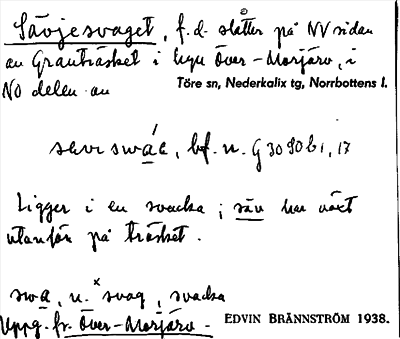 Sävjesvaget, f.d. slåtter på NV sidan
av Granträsket i byn Över-Morjärv, i
NO delen av Töre sn, Nederkalix tg, Norrbottens l.
bf. n. G 30906 1, 17
Ligger i en svacka; säv har växt
utanför på träsket.
swa, n. *svag, svacka
Uppg. fr. Över-Morjärv. EDVIN BRÄNNSTRÖM 1938.